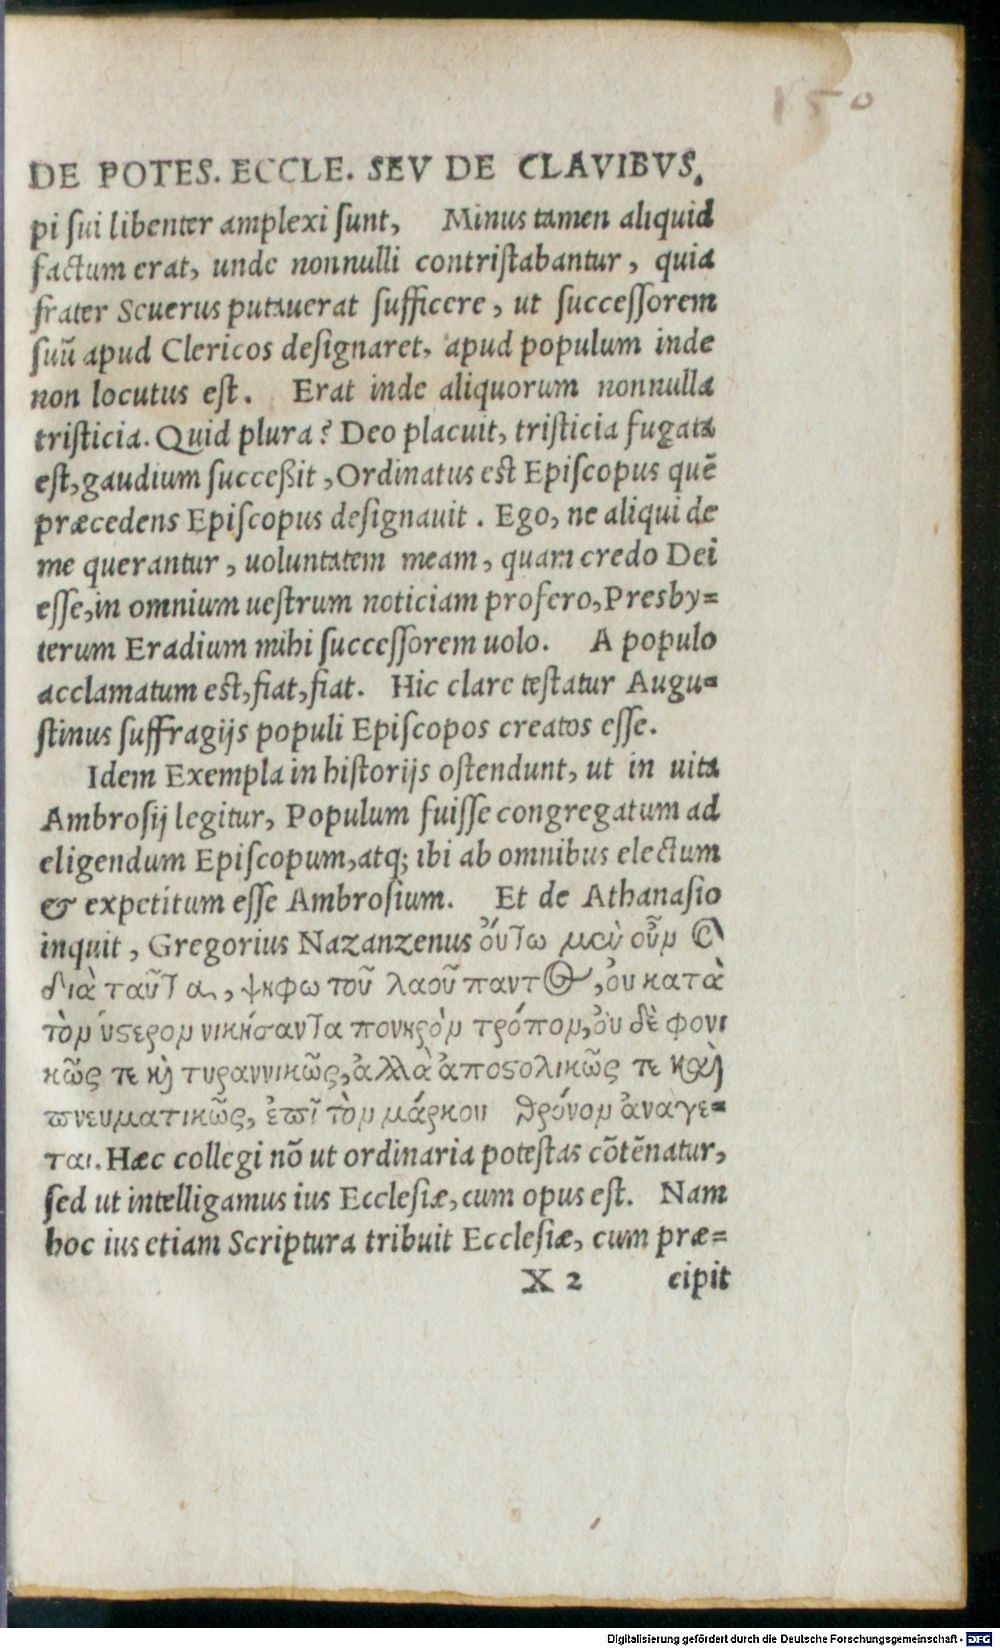 150
DE POTES. ECCLE. SEV DE CLAVIBVS.
pi ſui libenter amplexi ſunt, Minus tamen aliquid
factum erat, unde nonnulli contriſtabantur, quia
frater Seuerus putauerat ſufficere, ut ſucceſſorem
ſuũ apud Clericos deſignaret, apud populum inde
non locutus eſt. Erat inde aliquorum nonnulla
triſticia. Quid plura? Deo placuit, triſticia fugata
eſt, gaudium ſucceßit, Ordinatus est Epiſcopus quẽ
præcedens Epiſcopus deſignauit. Ego, ne aliqui de
me querantur, uoluntatem meam, quam credo Dei
eſſe, in omnium ueſtrum noticiam profero, Presby=
terum Eradium mihi ſucceſſorem uolo. A populo
acclamatum est, fiat, fiat. Hic clare teſtatur Augu=
ſtinus ſuffragijs populi Epiſcopos creatos eſſe.
Idem Exempla in hiſtorijs oſtendunt, ut in uita
Ambroſij legitur, Populum fuiſſe congregatum ad
eligendum Epiſcopum, atq; ibi ab omnibus electum
& expetitum eſſe Ambroſium. Et de Athanaſio
inquit, Gregorius Nazanzenus ὅυτω μὲν οὖν ϗ
διὰ ταῦτα, ψηφω τοῦ λαοῦ παντος, ὀυ κατὰ
τὸν ὑϛερον νικήσαντα πονηρὸν τρόπον, ὀυ δὲ φονι
κῶς τε ϗ τυραννικῶς, ἀλλὰ ἀποϛολικῶς τε καὶ
πνευματικῶς, ἐπὶ τὸν μάρκου θρόνον ἀναγε=
ται. Hæc collegi nõ ut ordinaria poteſtas cõtẽnatur,
ſed ut intelligamus ius Eccleſiæ, cum opus eſt. Nam
hoc ius etiam Scriptura tribuit Eccleſiæ, cum præ=
X 2 cipit
Digitalisierung gefördert durch die Deutsche Forschungsgemeinschaft - DFG